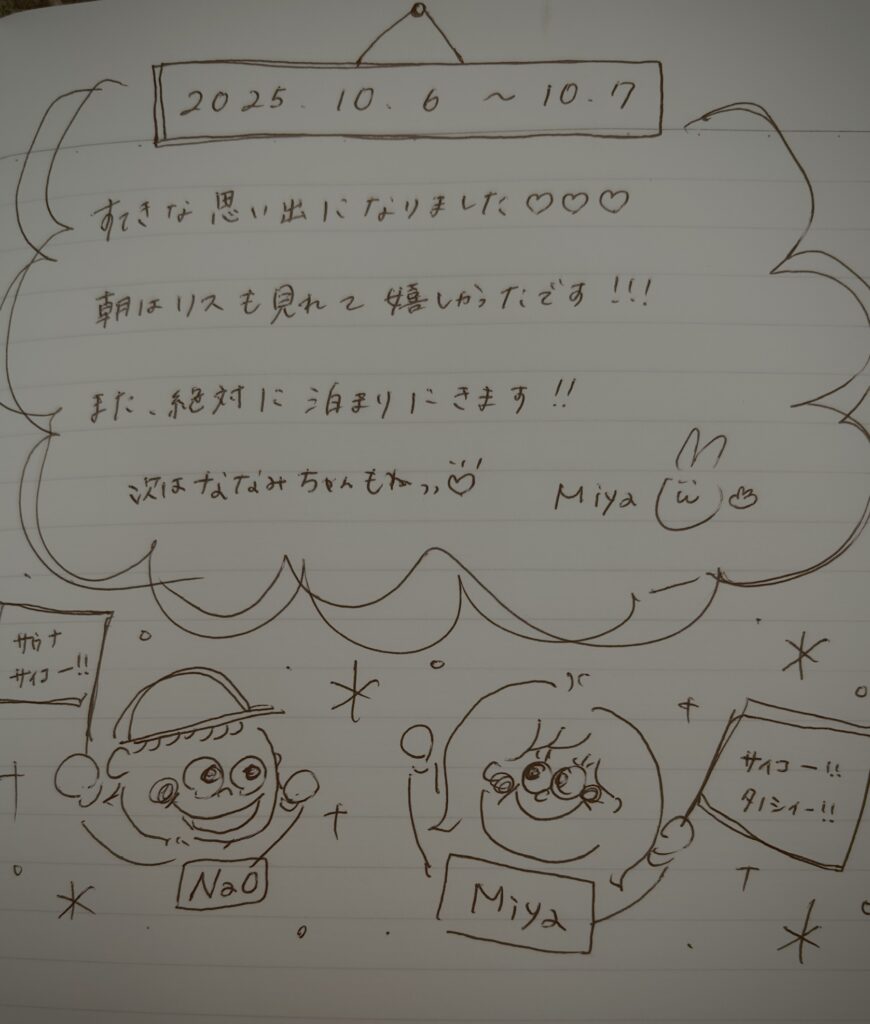 2025. 10. 6 ～ 10. 7
すてきな思い出になりました♡♡♡
朝はリスも見れて嬉しかったです!!!
また、絶対に泊まりにきます!!
次はななみちゃんもねっ,,♡
Miya
サウナ
サイコー!!
サイコー!!
タノシィー!!
NaO
Miya